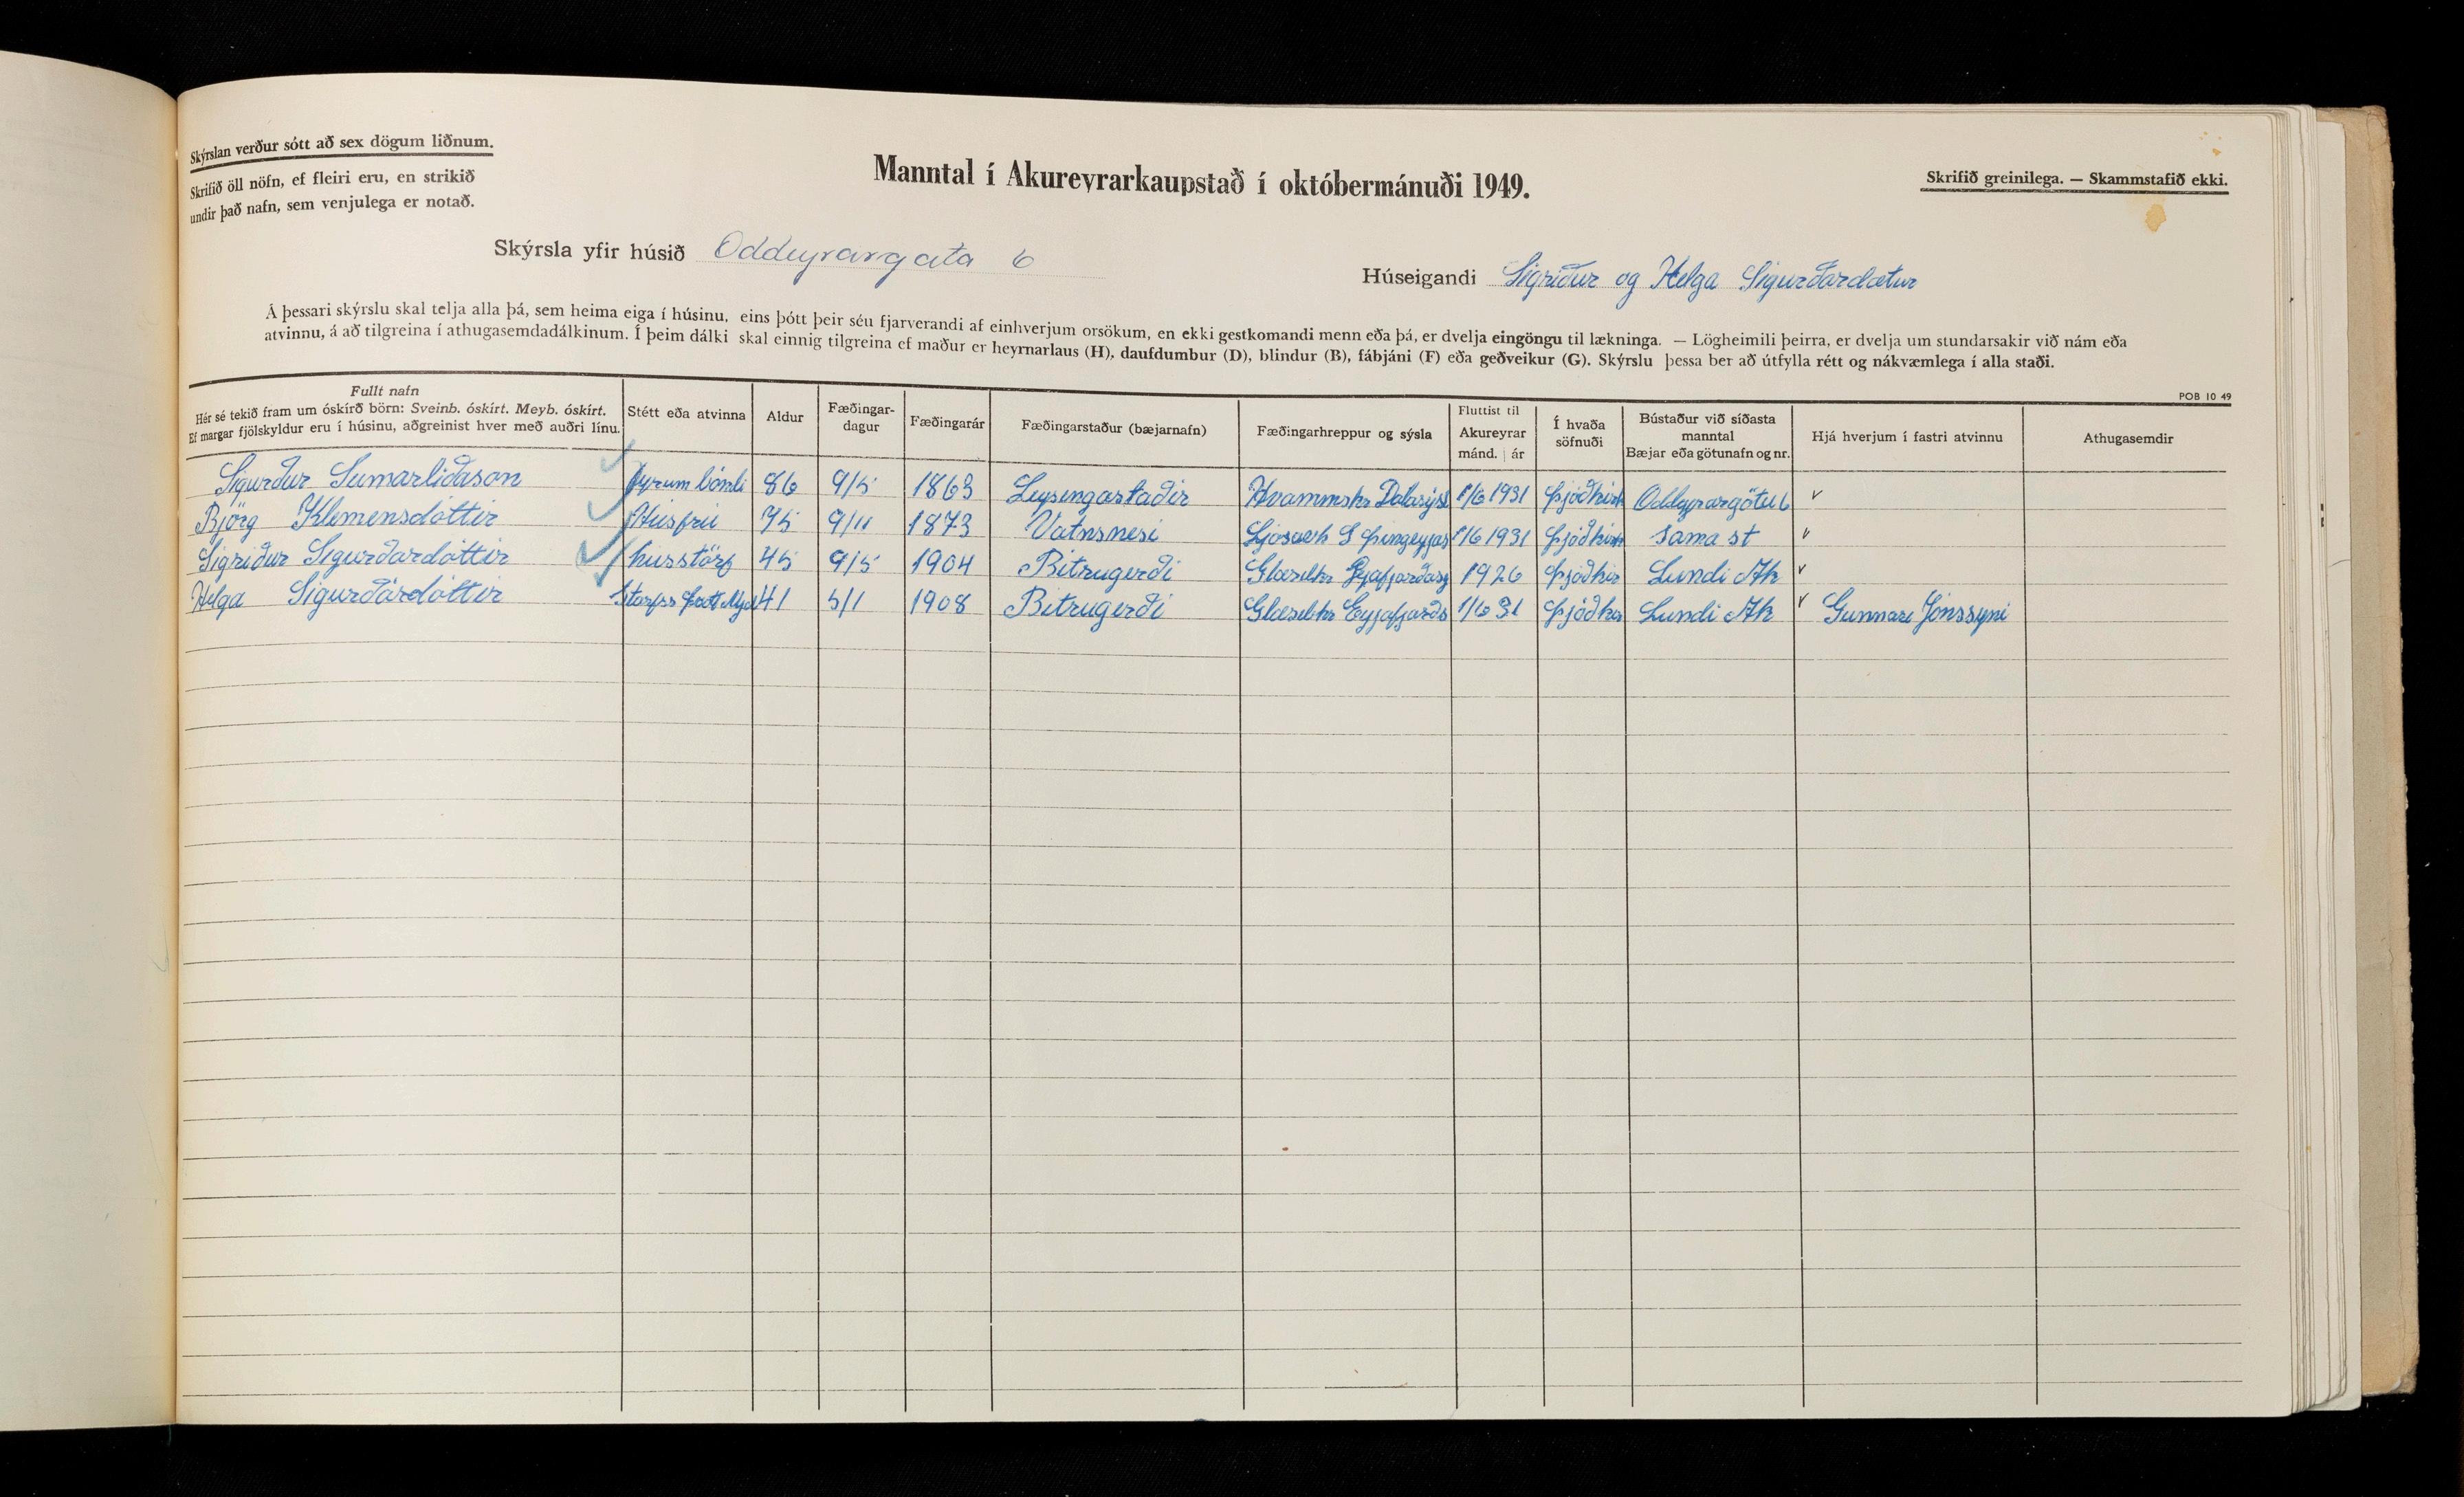 Skýrslan verður sótt að sex dögum liðnum.
Skrifið öll nöfn, ef fleiri eru, en strikið
undir það nafn, sem venjulega er notað.
Manntal í Akureyrarkaupstað í októbermánuði 1949.
Skrifið greinilega. — Skammstafið ekki.
Skýrsla yfir húsið Oddeyrargata 6
Húseigandi Sigríður og Helga Sigurðardætur
Á þessari skýrslu skal telja alla þá, sem heima eiga í húsinu, eins þótt þeir séu fjarverandi af einhverjum orsökum, en ekki gestkomandi menn eða þá, er dvelja eingöngu til lækninga. — Lögheimili þeirra, er dvelja um stundarsakir við nám eða
atvinnu, á að tilgreina í athugasemdadálkinum. Í þeim dálki skal einnig tilgreina ef maður er heyrnarlaus (H), daufdumbur (D), blindur (B), fábjáni (F) eða geðveikur (G). Skýrslu þessa ber að útfylla rétt og nákvæmlega í alla staði.
POB 10 49
Fullt nafn
Hér sé tekið fram um óskírð börn: Sveinb. óskírt. Meyb. óskírt.
Ef margar fjölskyldur eru í húsinu, aðgreinist hver með auðri línu.
Stétt eða atvinna
Aldur
Fæðingar-
dagur
Fæðingarár
Fæðingarstaður (bæjarnafn)
Fæðingarhreppur og sýsla
Fluttist til
Akureyrar
mánd. ár
Í hvaða
söfnuði
Bústaður við síðasta
manntal
Bæjar eða götunafn og nr.
Hjá hverjum í fastri atvinnu
Athugasemdir
Sigurður Sumarliðason fyrum bóndi 86 9/5 1863 Leysingastaðir Hvammshr Dalasýsl 1/6 1931 Þjóðkirk Oddeyrargötu 6 v
Björg Klemensdóttir Húsfrú 75 9/11 1873 Vatnsnesi Ljósavh S Þingeyjas 1/6 1931 Þjóðkirk Sama st v
Sigríður Sigurðardóttir hússtörf 45 9/5 1904 Bitrugerði Glæsilhr Eyjafjarðasy 1926 Þjóðkir Lundi Ak v
Helga Sigurðardóttir 41 5/1 1908 Bitrugerði Glæsilhr Eyjafjarðs 1/6 31 Þjóðkir Lundi Ak v Gunnari Jónssyni